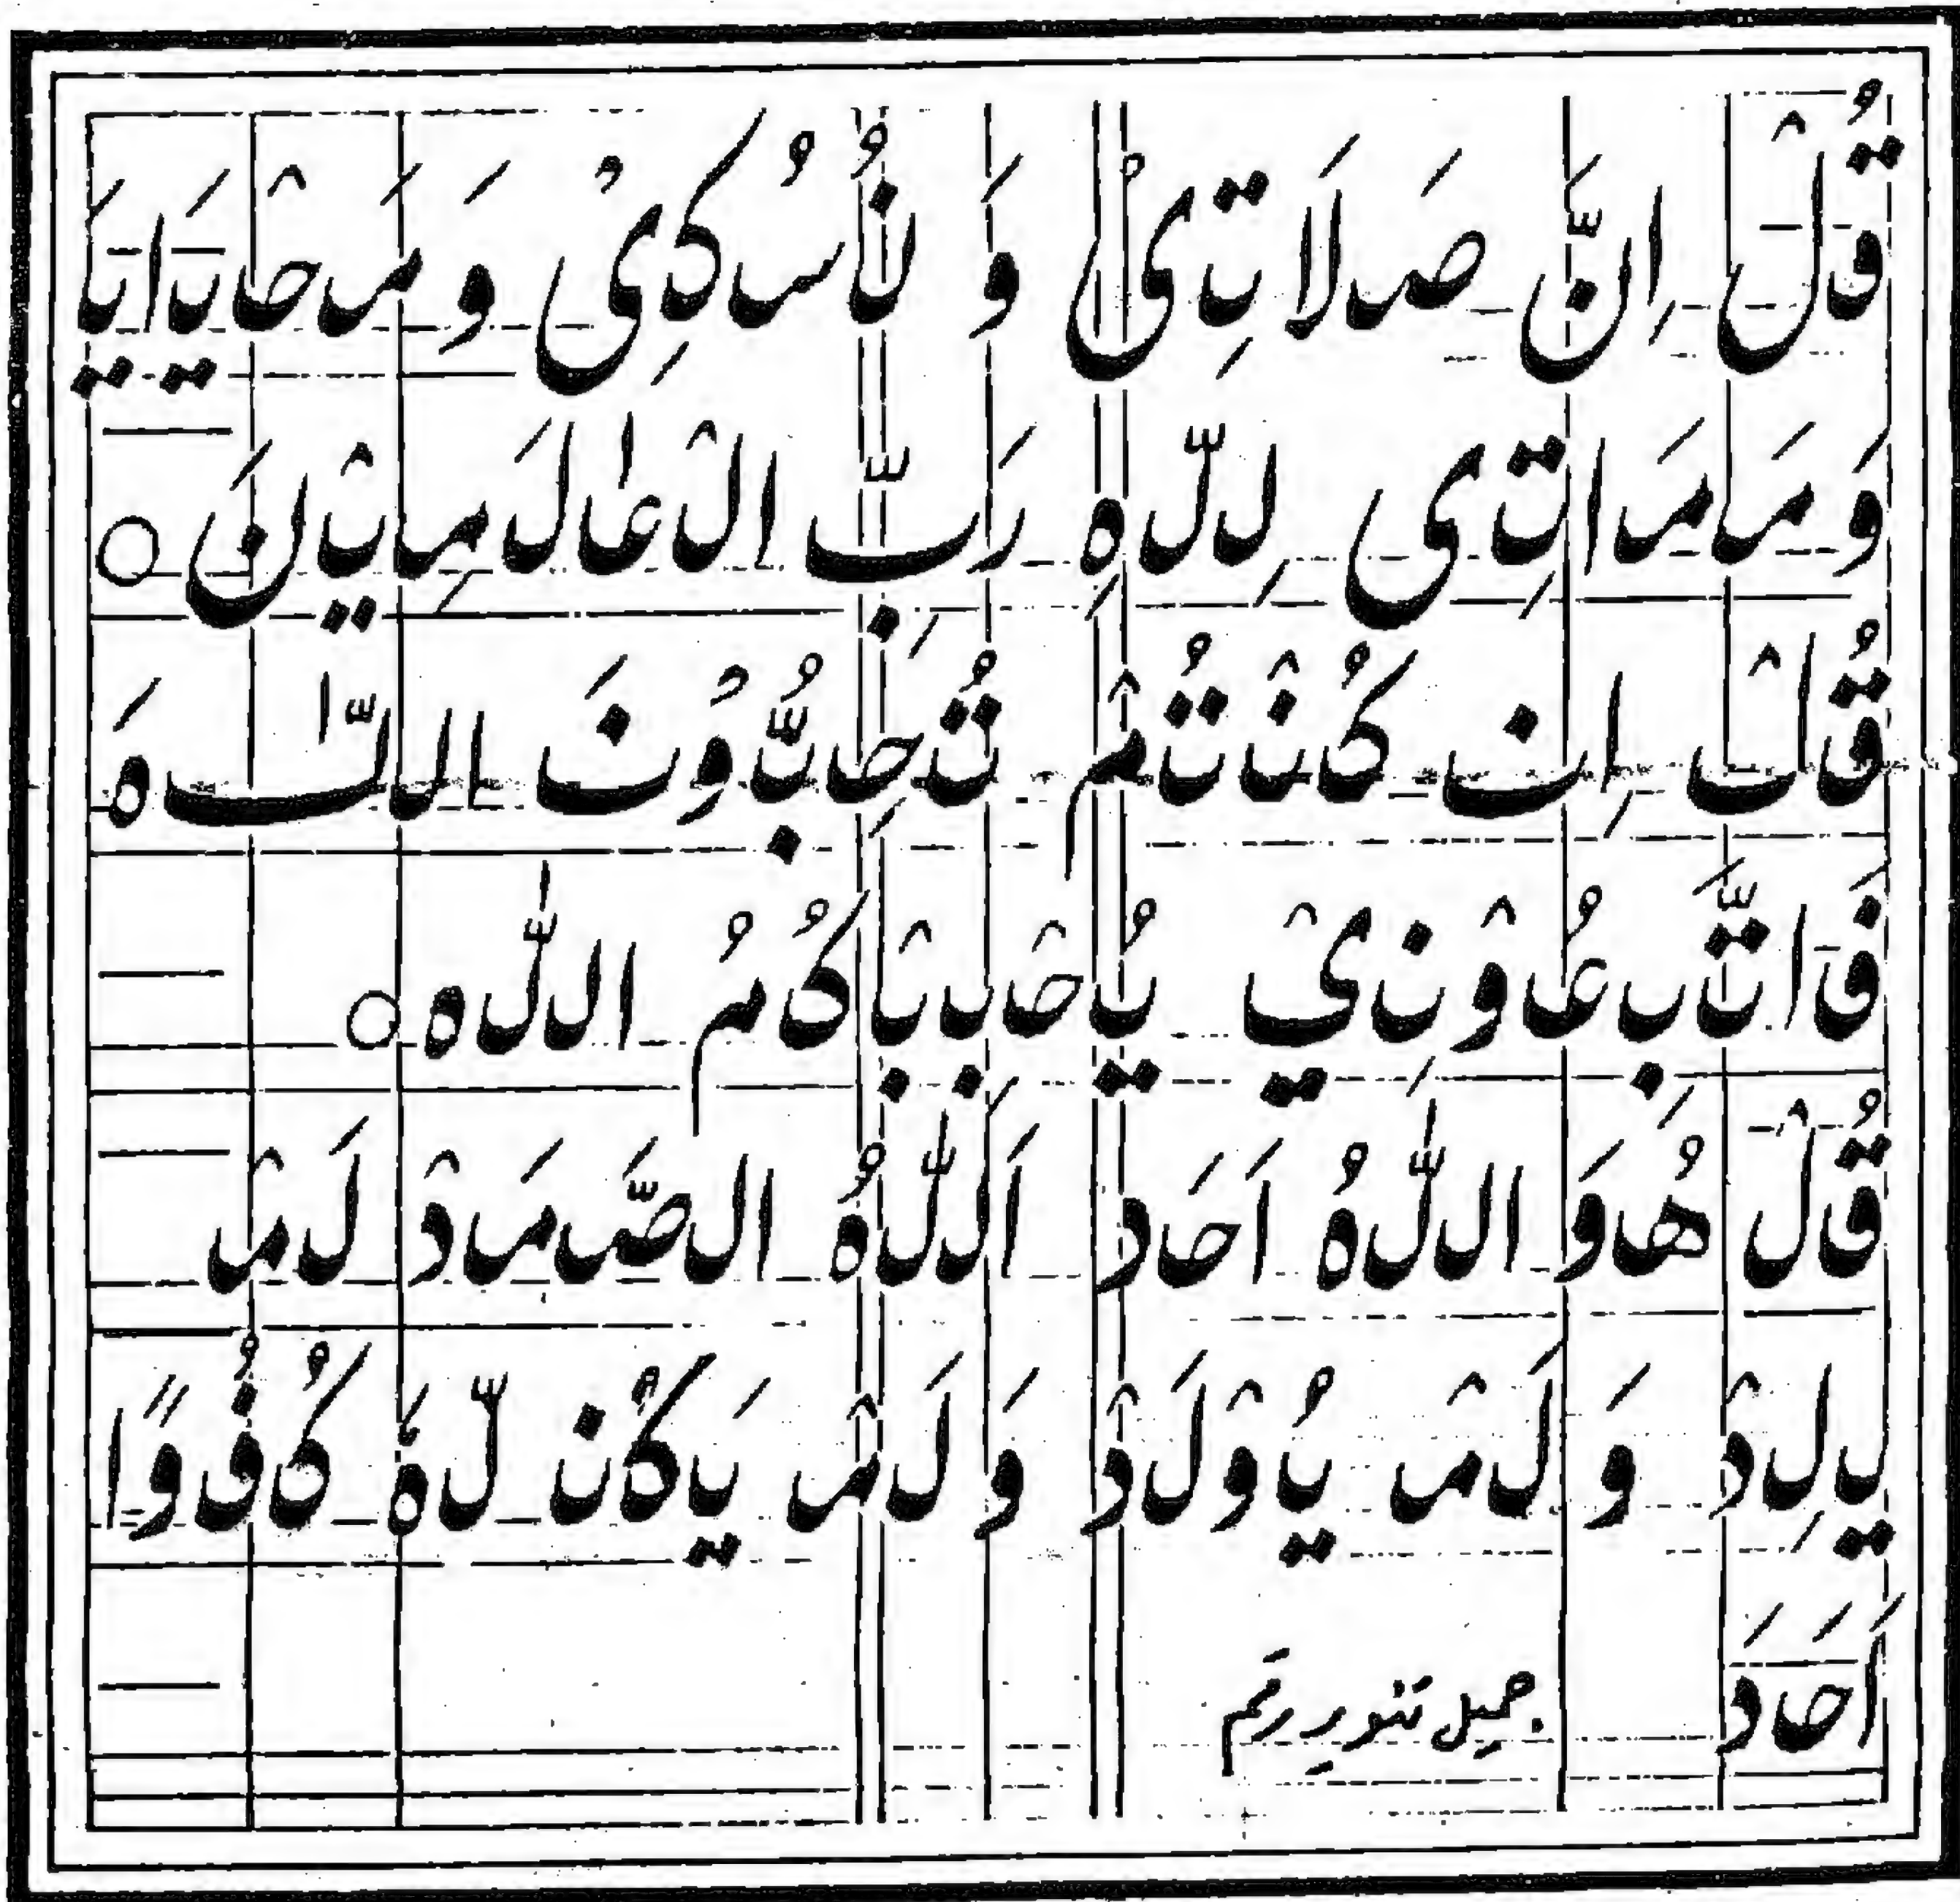 قُلْ اِنَّ صَلَاتِیْ وَ نُسُکِیْ وَ مَحْیَایَ
وَ مَمَاتِی لِلّٰہِ رَبِّ الْعٰلَمِیْنَ ○
قُلْ اِن کُنْتُمْ تُحِبُّوْنَ اللّٰہَ
فَاتَّبِعُوْنِیْ یُحْبِبْکُمُ اللّٰہ ○
قُلْ ھُوَ اللّٰہُ اَحَد اَللّٰہُ الصَّمَدْ لَمْ
یَلِدْ وَ لَمْ یُوْلَدْ وَ لَمْ یَکُنْ لَّہٗ کُفُوًا
اَحَدَ
جمیل تنویر رقم